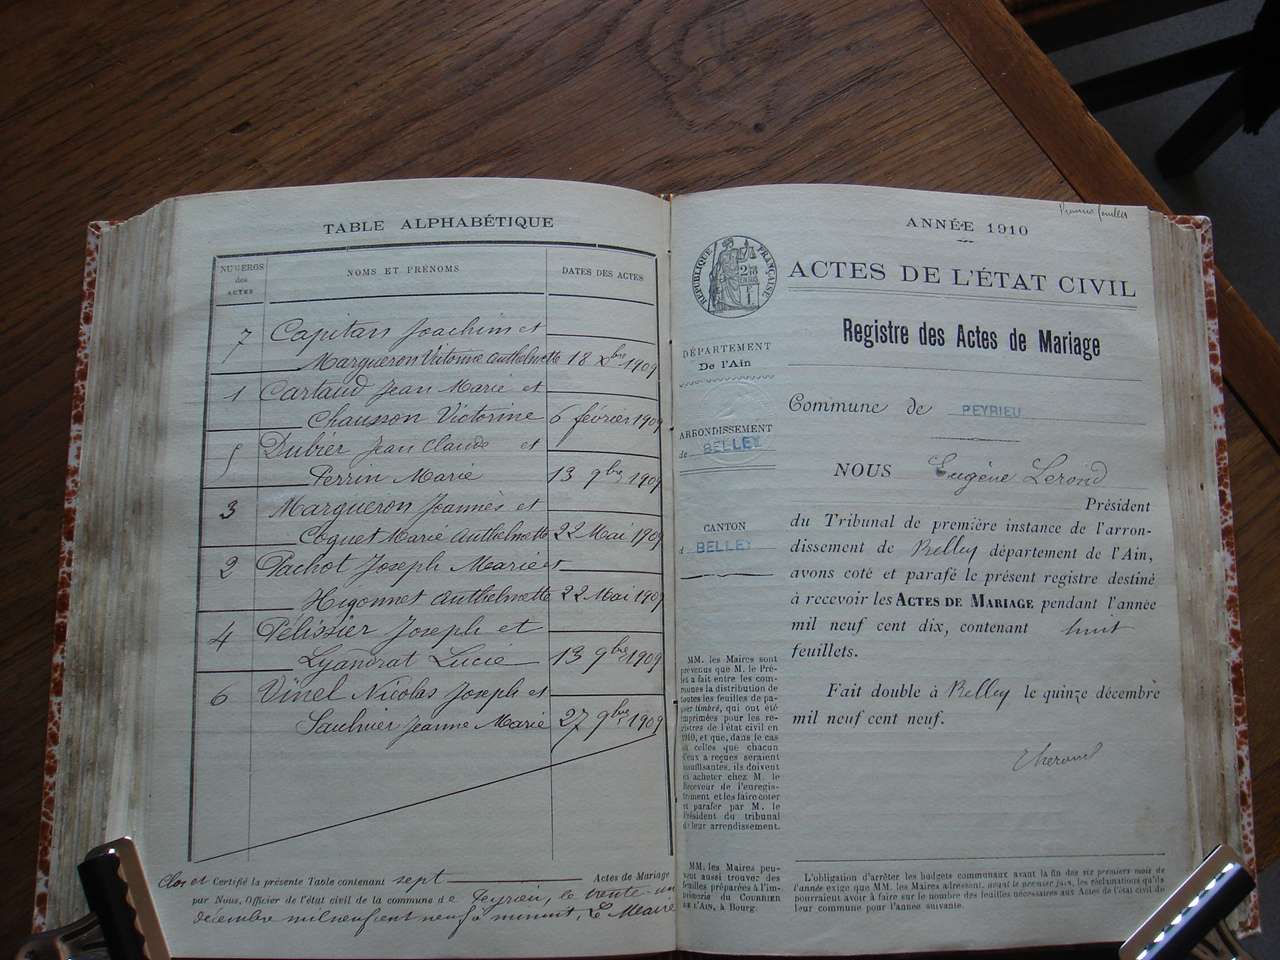 TABLE ALPHABÉTIQUE
NUMEROS des ACTES
NOMS ET PRÉNOMS
DATES DES ACTES
7 Capitan Joachim et
Margueron Victorine Anthelmette 18 Xbre 1909
1 Cartaud Jean Marie et
Chausson Victorine 6 février 1909
5 Dubier Jean Claude et
Perrin Marie 13 9bre 1909
3 Margueron Joannès et
Coguet Marie Anthelmette 22 Mai 1909
2 Pachot Joseph Marie et
Higonnet Anthelmette 22 Mai 1909
4 Pélissier Joseph et
Lyandrat Lucie 13 9bre 1909
6 Vinel Nicolas Joseph et
Saulnier Jeanne Marie 27 9bre 1909
Clos et Certifié la présente Table contenant sept Actes de Mariage
par Nous, Officier de l'état civil de la commune de Peyrieu, le trente-un
décembre mil neuf cent neuf à minuit, Le Maire
ANNÉE 1910
RÉPUBLIQUE FRANÇAISE
ACTES DE L'ÉTAT CIVIL
Registre des Actes de Mariage
DÉPARTEMENT
De l'Ain
ARRONDISSEMENT
de BELLEY
CANTON
d BELLEY
MM. les Maires sont
prévenus que M. le Pré-
fet a fait entre les com-
munes la distribution de
toutes les feuilles de pa-
pier timbré, qui ont été
imprimées pour les re-
gistres de l'état civil en
1910, et que, dans le cas
où celles que chacun
d'eux a reçues seraient
insuffisantes, ils doivent
en acheter chez M. le
Receveur de l'enregis-
trement et les faire coter
et parafer par M. le
Président du tribunal
de leur arrondissement.
MM. les Maires peu-
vent aussi trouver des
feuilles préparées à l'im-
primerie du COURRIER
DE L'AIN, à Bourg.
Commune de PEYRIEU
NOUS Eugène Lerond
Président
du Tribunal de première instance de l'arron-
dissement de Belley département de l'Ain,
avons coté et parafé le présent registre destiné
à recevoir les ACTES DE MARIAGE pendant l'année
mil neuf cent dix, contenant huit
feuillets.
Fait double à Belley le quinze décembre
mil neuf cent neuf.
L'obligation d'arrêter les budgets communaux avant la fin des six premiers mois de
l'année exige que MM. les Maires adressent, avant le premier juin, les déclarations qu'ils
pourraient avoir à faire sur le nombre des feuilles nécessaires aux Actes de l'état civil de
leur commune pour l'année suivante.